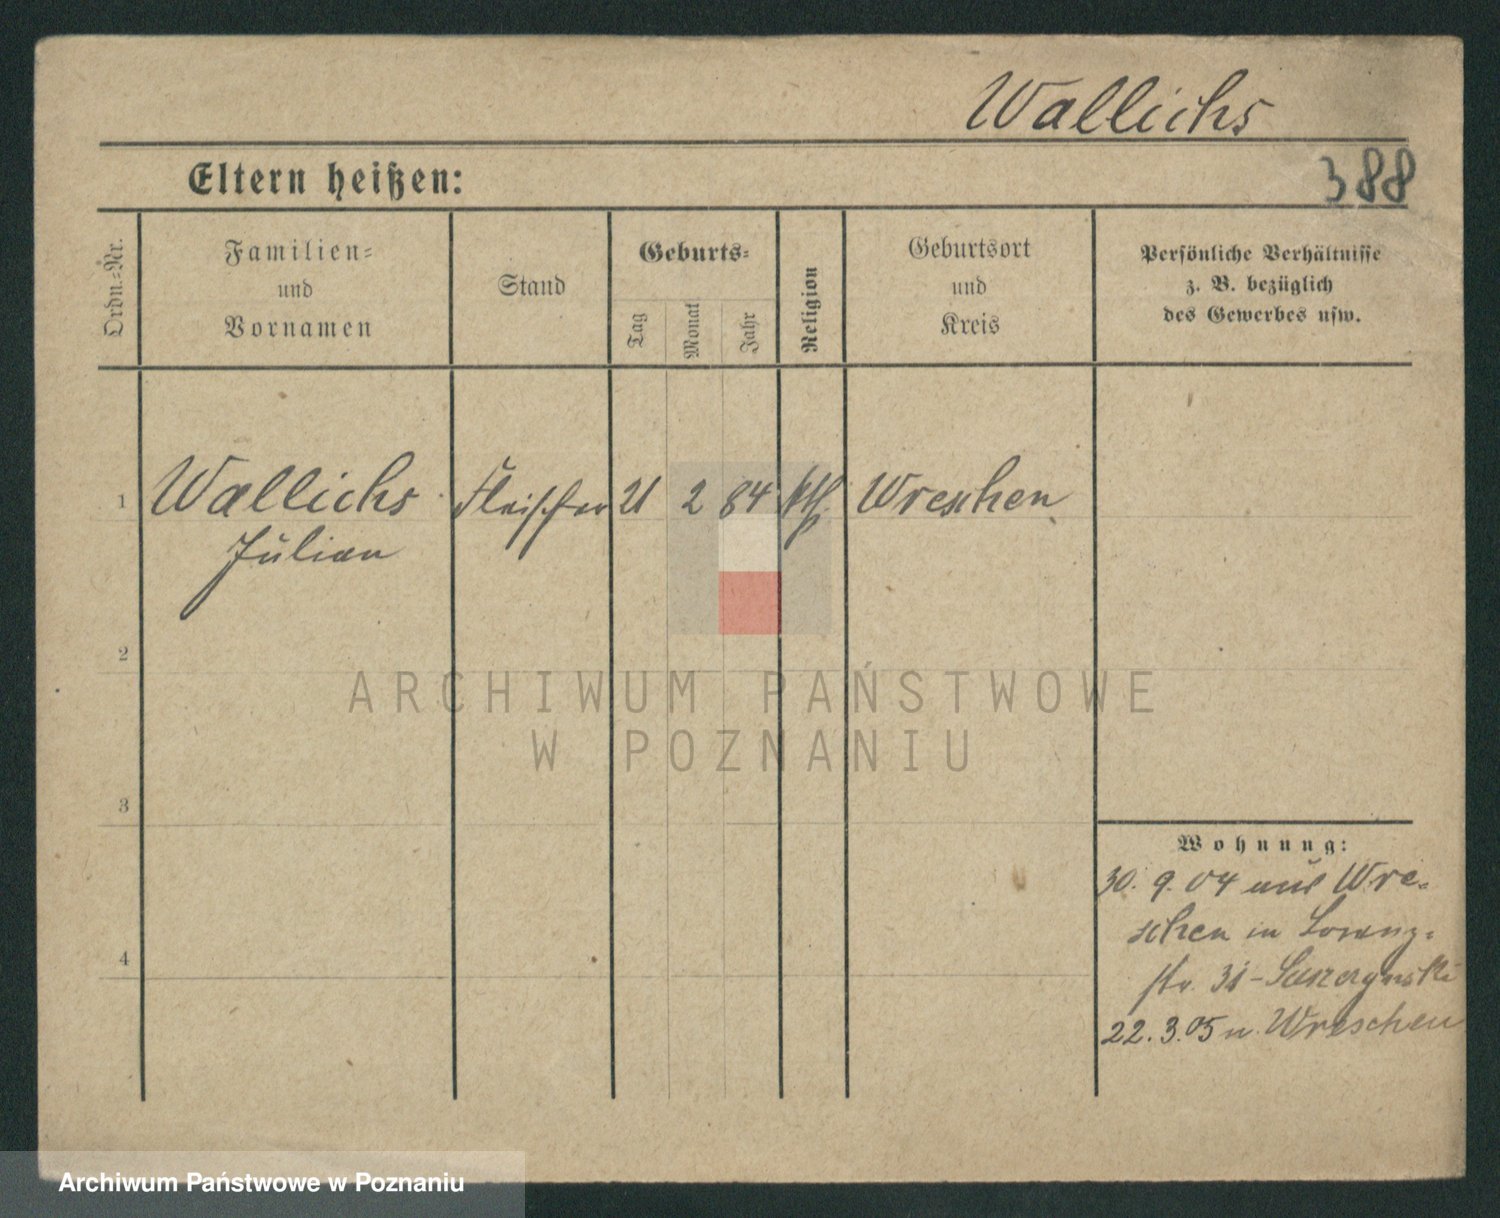 Wallichs
Eltern heißen:
388
Ordn.-Nr.
Familien-
und
Vornamen
Stand
Geburts-
Tag
Monat
Jahr
Religion
Geburtsort
und
Kreis
Persönliche Verhältnisse
z. B. bezüglich
des Gewerbes usw.
1
Wallichs
Julian
Fleischer
21
2
84
kth.
Wreschen
2
ARCHIWUM PAŃSTWOWE
W POZNANIU
3
Wohnung:
30. 9. 04 aus Wre-
schen in
str. 31 -
22. 3. 05 n. Wreschen
4
Archiwum Państwowe w Poznaniu